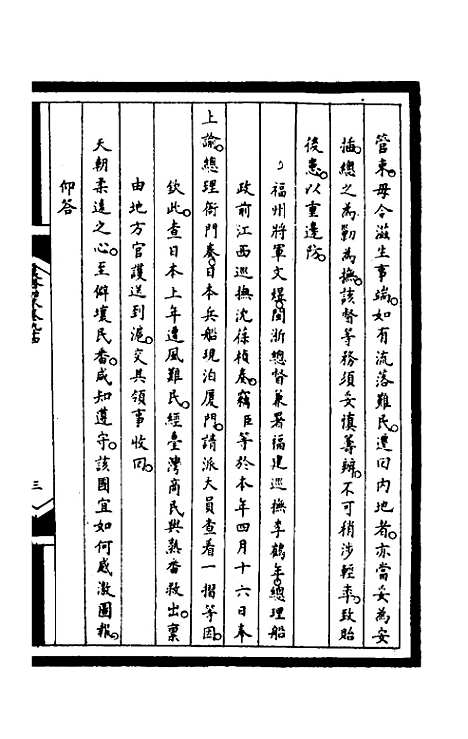 管束。毋令滋生事端。如有流落難民。遭回內地者。亦當妥為安
插。總之為勦為撫。該督等務須妥慎籌辦。不可稍涉輕率。致貽
後患。以重邊防。
福州將軍文煜。閩浙總督兼署福建巡撫李鶴年。總理船
政前江西巡撫沈葆楨奏。竊臣等於本年四月十六日奉
上諭。總理衙門奏。日本兵船現泊厦門。請派大員查看一摺等因。
欽此。查日本上年遭風難民。經臺灣商民與熟番救出。稟
由地方官護送到滬。交其領事收回。
天朝柔遠之心。至僻壤民番。咸知遵守。該國宜如何感激圖報。
仰答
三